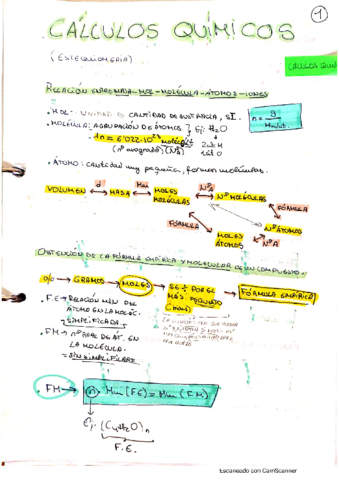 1
CÁLCULOS QUÍMICOS
(ESTEQUIOMETRÍA)
CÁLCULOS QUÍM
RELACIÓN ENTRE MASA-MOL-MOLÉCULA-ÁTOMOS-IONES
· MOL: UNIDAD DE CANTIDAD DE SUSTANCIA, SI.
n = g / Mm/at.
· MOLÉCULA: AGRUPACIÓN DE ÁTOMOS } Ej: H2O
1n = 6'022·10^23 moléculas
(nº avogadro) (NA)
2 át H
1 át O
· ÁTOMO: Cantidad muy pequeña, forman moléculas.
VOLUMEN d MASA Mm MOLES MOLÉCULAS NºA Nº MOLÉCULAS
FÓRMULA
FÓRMULA
MOLES ÁTOMOS NºA Nº ÁTOMOS
OBTENCIÓN DE LA FÓRMULA EMPÍRICA Y MOLECULAR DE UN COMPUESTO.
% → GRAMOS → MOLES → SE ÷ POR EL MÁS PEQUEÑO (moles) → FÓRMULA EMPÍRICA
· F.E → RELACIÓN MÍN DEL
ÁTOMO EN LA MOLÉC.
- SIMPLIFICADA
· FM → nº REAL DE ÁT. EN
LA MOLÉCULA.
- SIN SIMPLIFICAR
FM → n · Mm (FE) = Mm (FM)
Ej: (C4H2O)n
F.E.
Escaneado con CamScanner